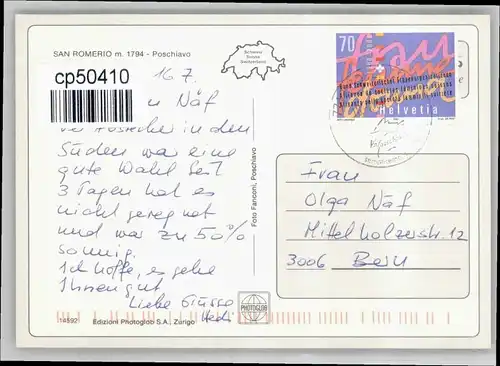 SAN ROMERIO m. 1794 - Poschiavo
cp50410
16.7.
Näf
in den
Süden war eine
gute Wahl. Seit
3 Tagen hat es
nicht geregnet
und war zu 50%
sonnig.
Ich hoffe, es gehe
Ihnen gut
Liebe Grüsse
Hedi
14592 Edizioni Photoglob S.A., Zurigo
Foto Fanconi, Poschiavo
PHOTOGLOB
Schweiz
Suisse
Svizzera
70
Helvetia
Frau
Olga Näf
Mittelholzerstr. 12
3006 Bern